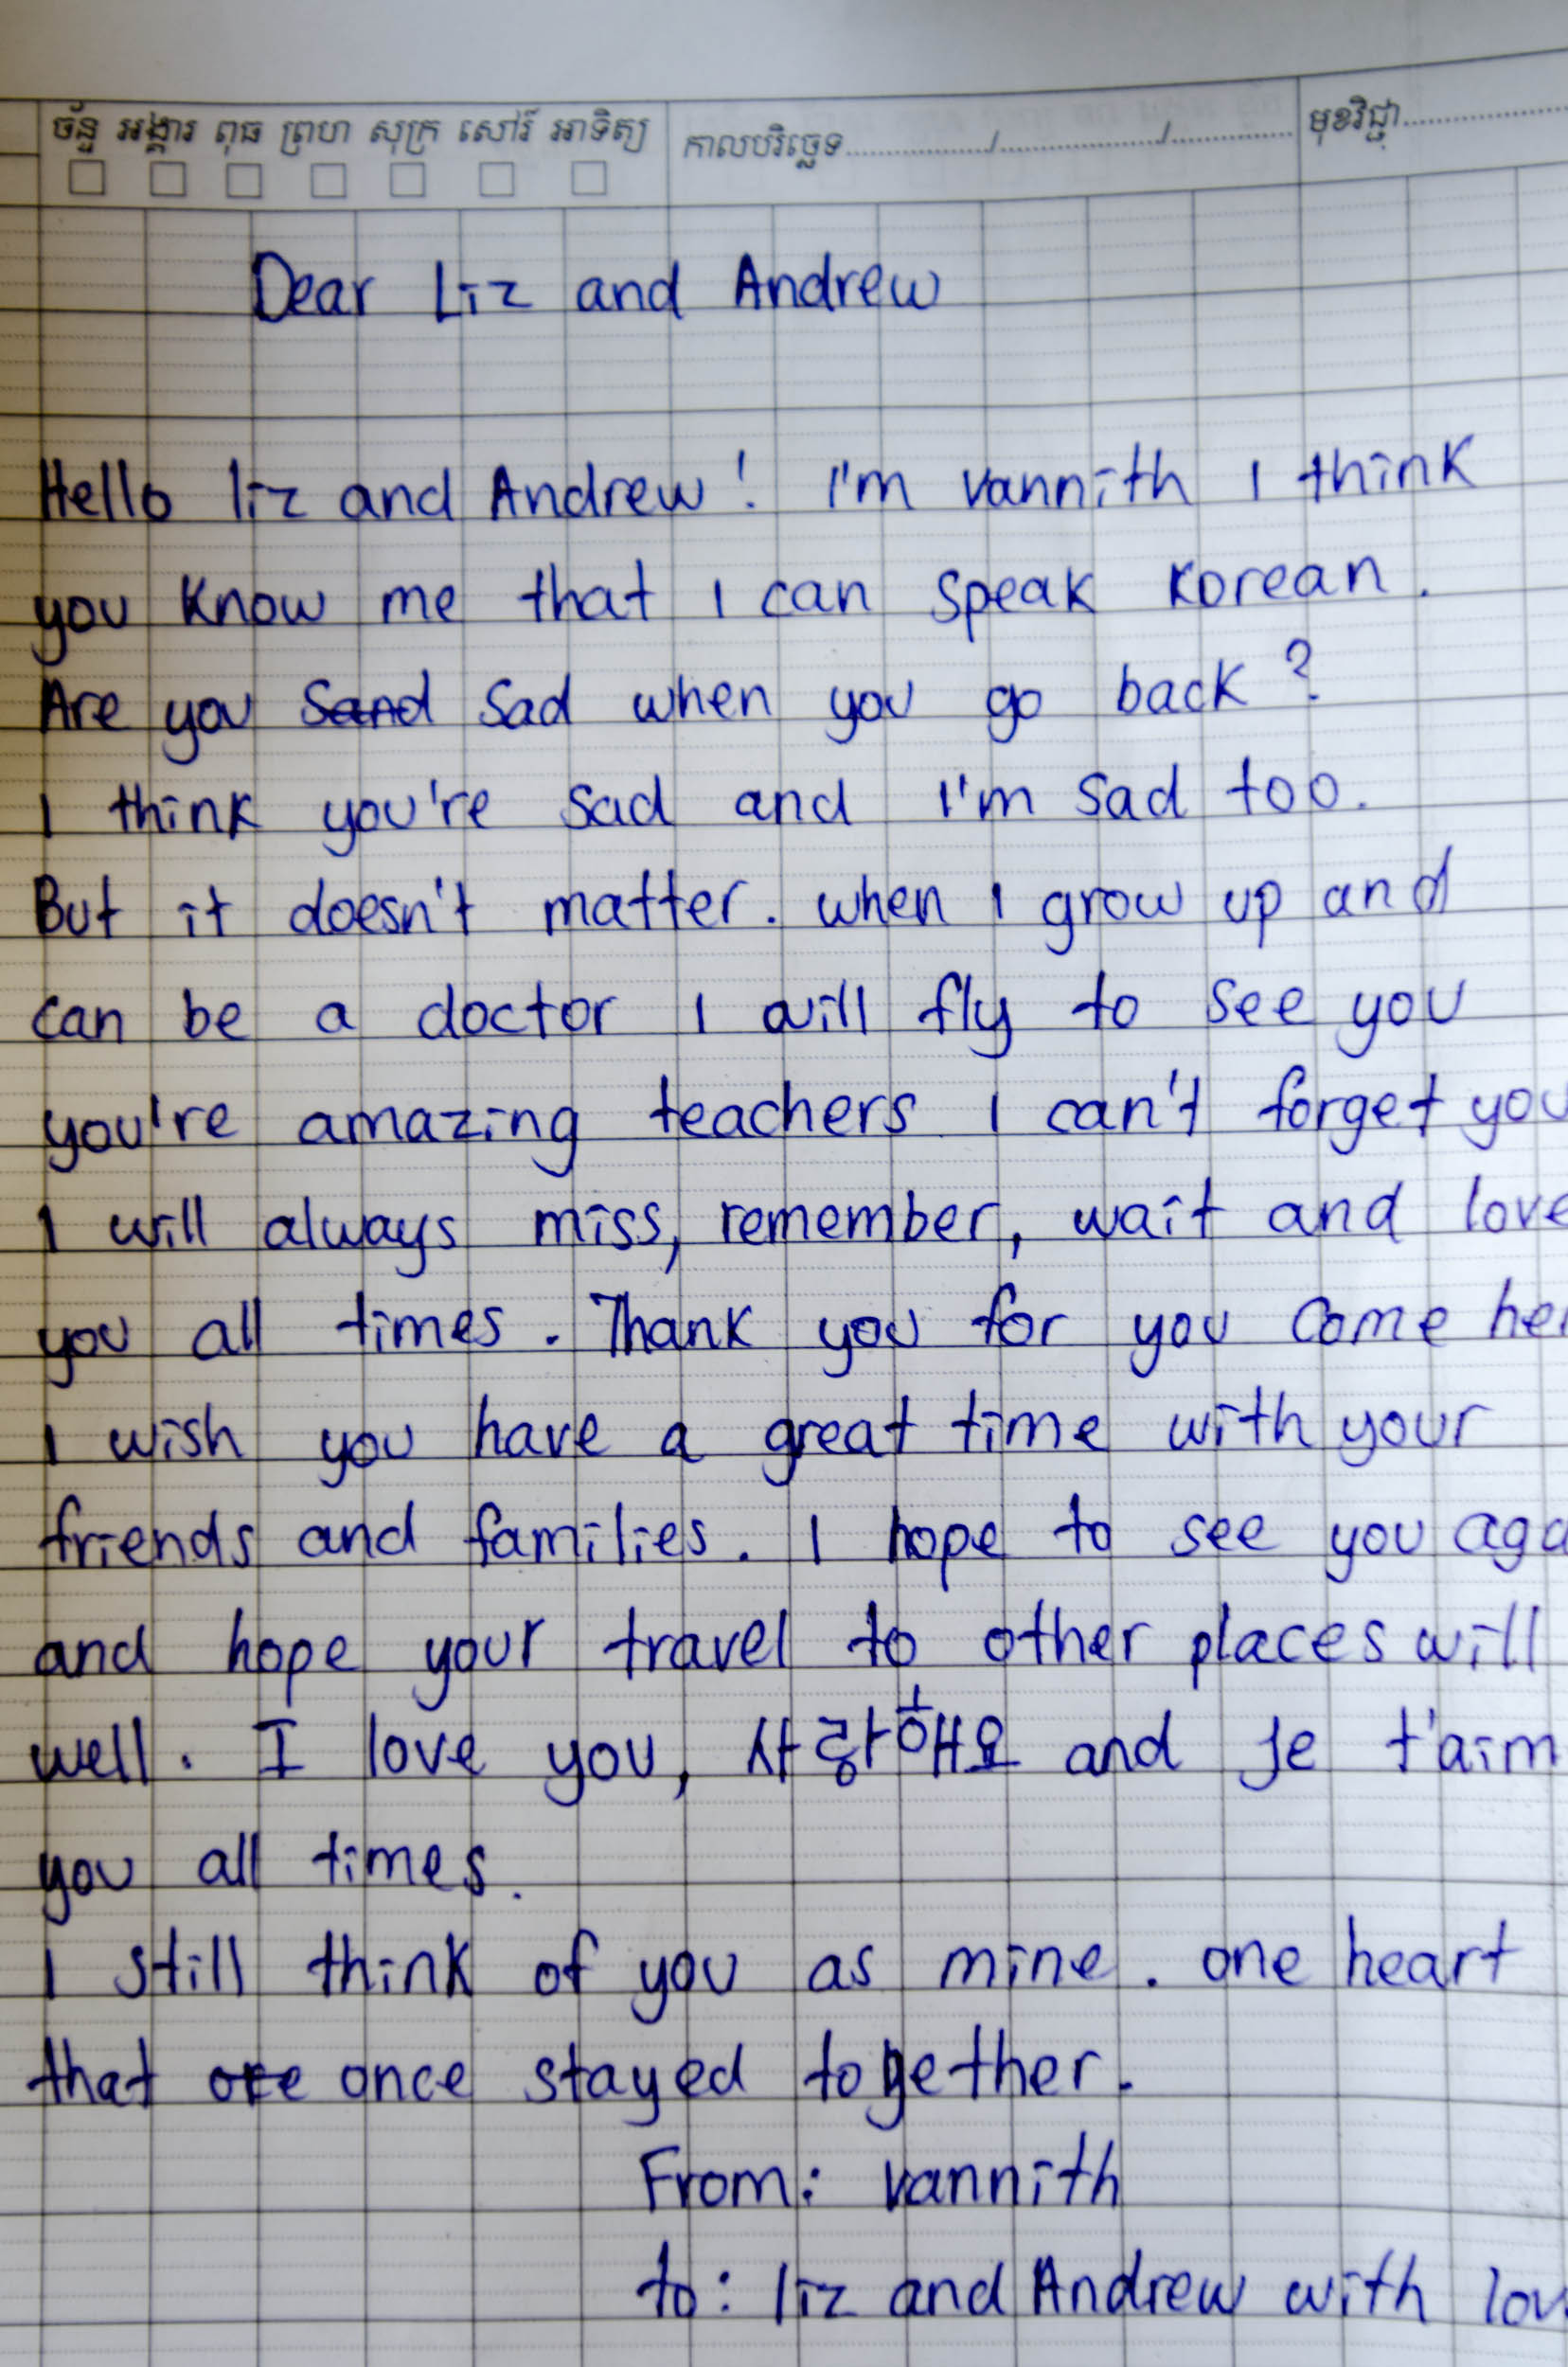 ច័ន្ទ អង្គារ ពុធ ព្រហ សុក្រ សៅរ៍ អាទិត្យ
កាលបរិច្ឆេទ................/................/............ មុខវិជ្ជា................
Dear Liz and Andrew
Hello liz and Andrew! I'm vannith I think
you know me that I can speak korean.
Are you sand sad when you go back?
I think you're sad and I'm sad too.
But it doesn't matter. when I grow up and
can be a doctor I will fly to see you
you're amazing teachers I can't forget you
I will always miss, remember, wait and love
you all times. Thank you for you come her
I wish you have a great time with your
friends and families. I hope to see you aga
and hope your travel to other places will
well. I love you, 사랑해요 and je t'aim
you all times.
I still think of you as mine. one heart
that once stayed together.
From: vannith
to: liz and Andrew with lov